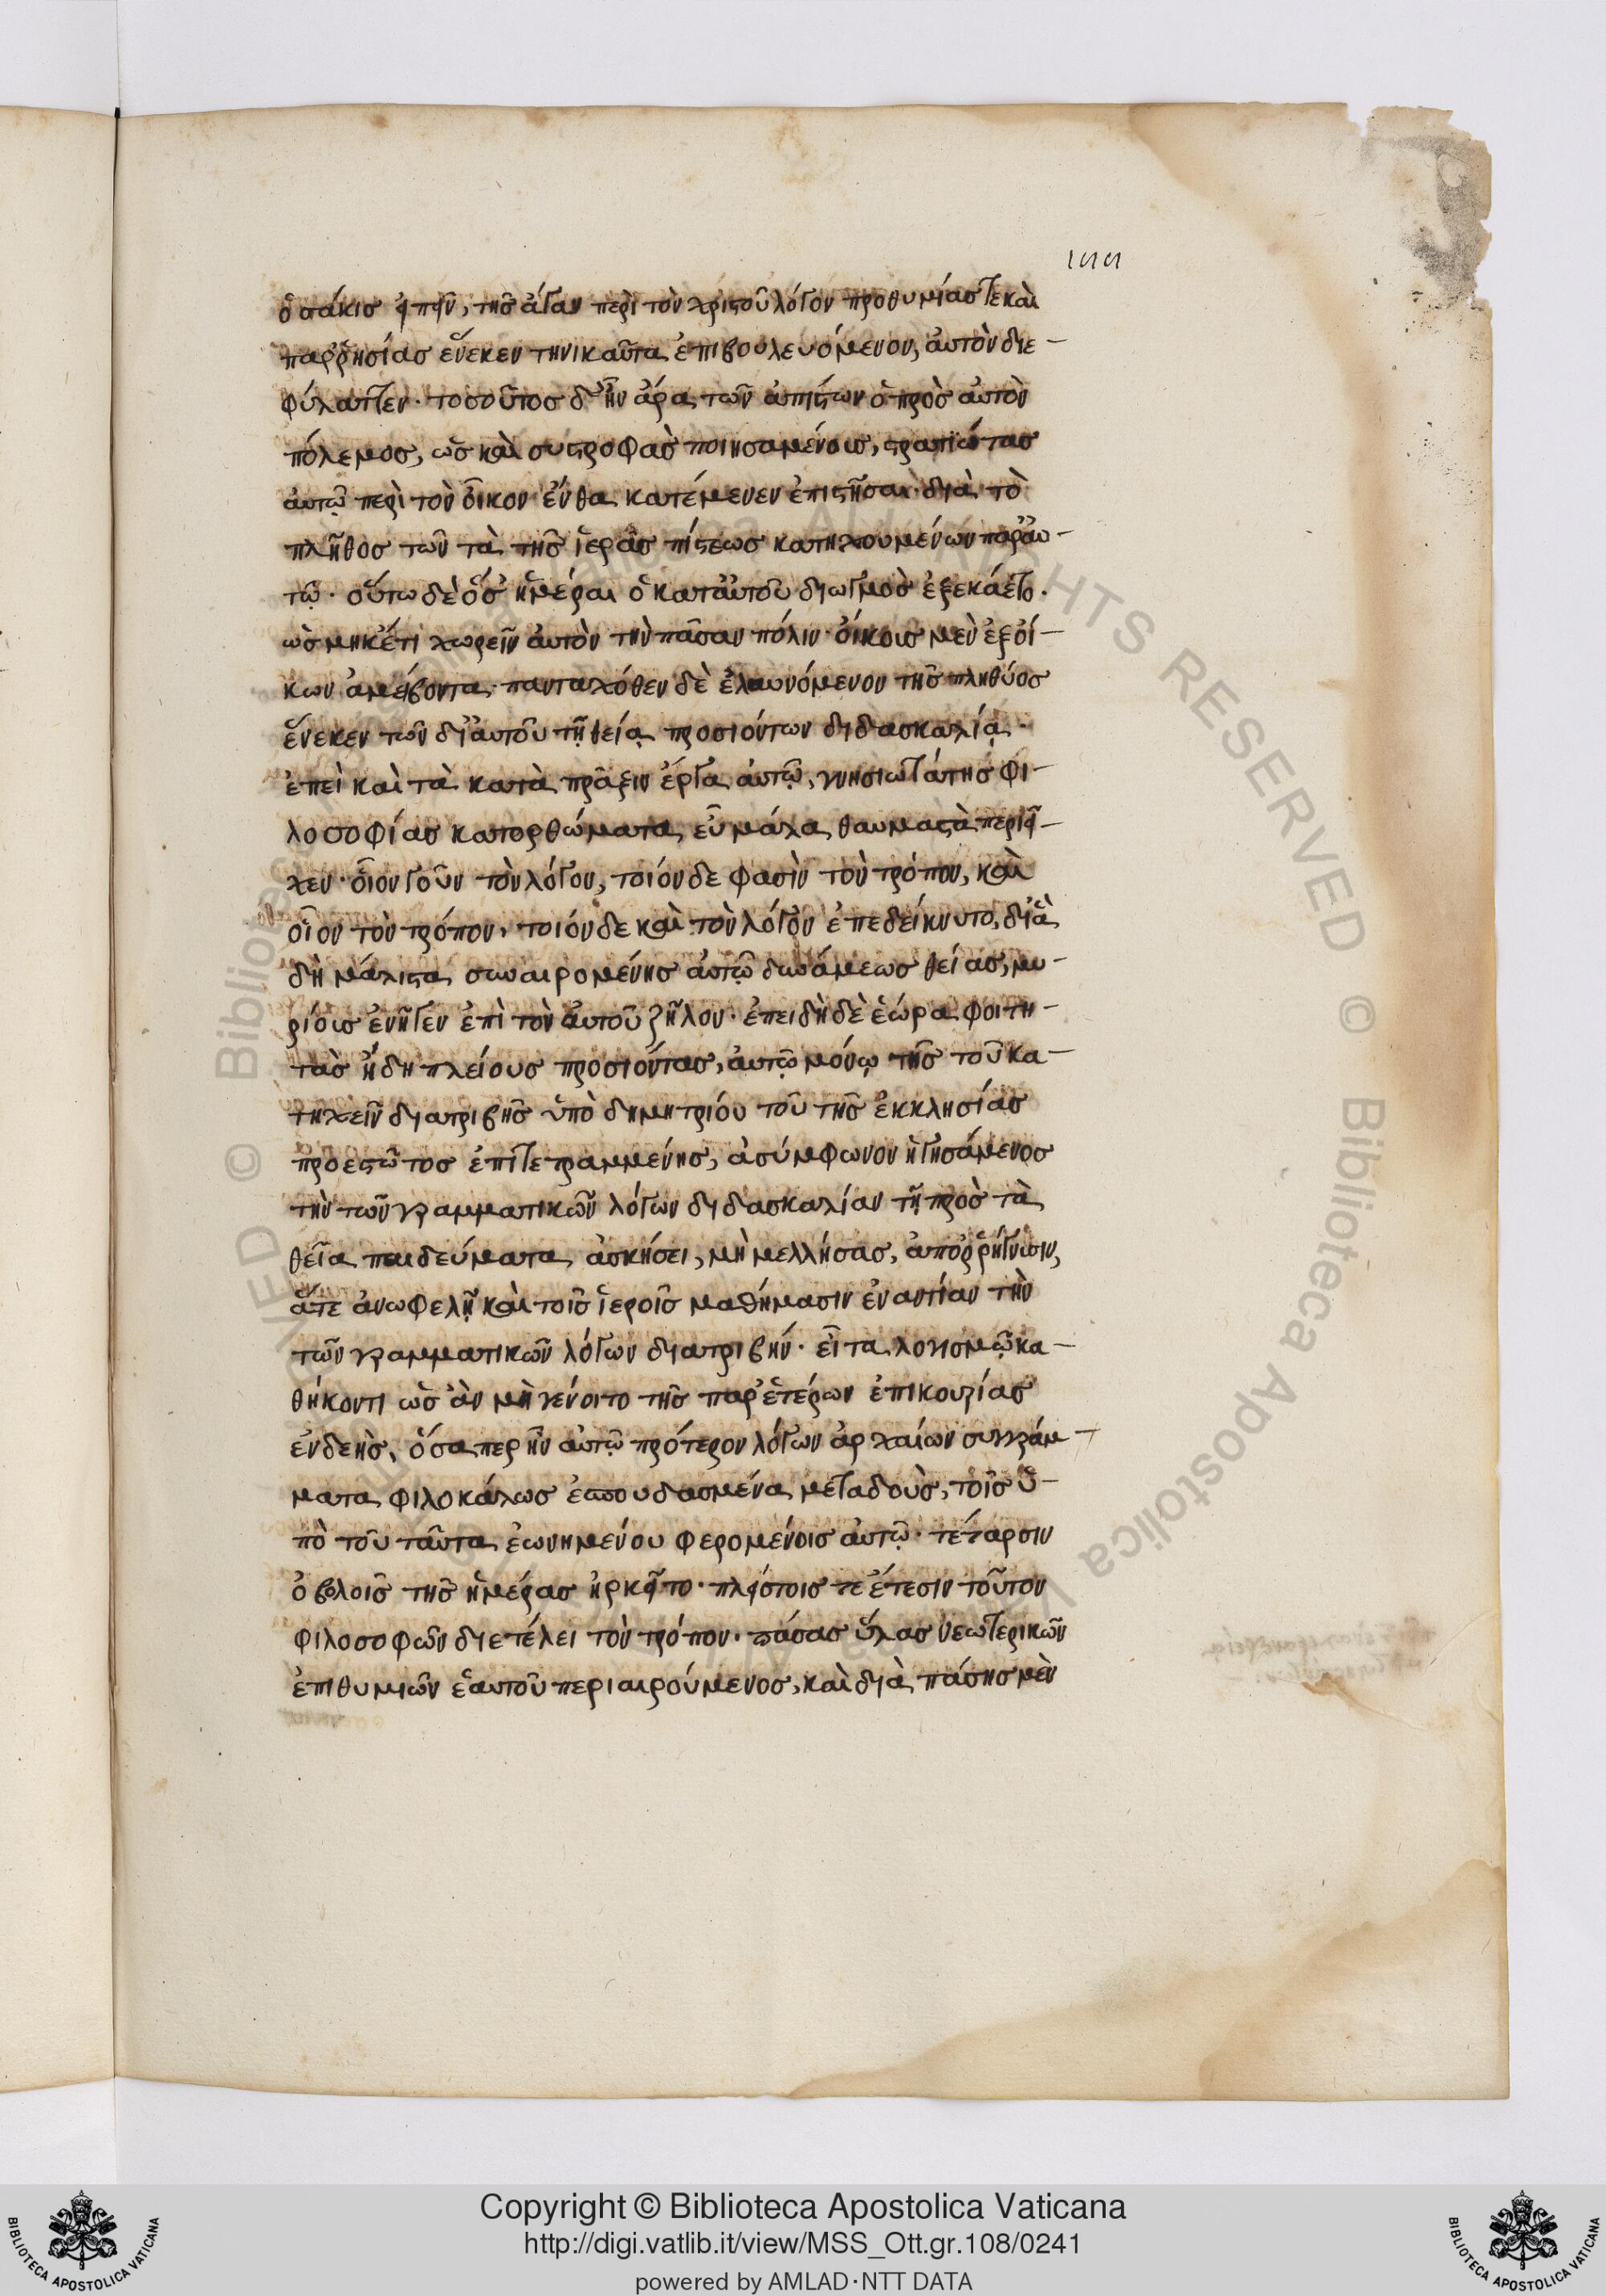 ὁσάκις εἰπεῖν, τῆς ἄγαν περὶ τὸν χριστοῦ λόγον προθυμίας τε καὶ
παρρησίας ἕνεκεν τηνικαῦτα ἐπιβουλευόμενον, αὐτὸν διε-
φύλαττεν· τοσοῦτος δ' ἦν ἄρα τῶν ἀπίστων ὁ πρὸς αὐτὸν
πόλεμος, ὡς καὶ συστροφὰς ποιησαμένους, στρατιώτας
αὐτῷ περὶ τὸν οἶκον ἔνθα κατέμενεν ἐπιστῆσαι· διὰ τὸ
πλῆθος τῶν τὰ τῆς ἱερᾶς πίστεως κατηχουμένων παρ' αυ-
τῷ· οὕτω δὲ ὁσημέραι ὁ κατ' αὐτοῦ διωγμὸς ἐξεκάετο·
ὡς μηκέτι χωρεῖν αὐτὸν τὴν πᾶσαν πόλιν· οἴκους μὲν ἐξ οἴ-
κων ἀμείβοντα· πανταχόθεν δὲ ἐλαυνόμενον τῆς πληθύος
ἕνεκεν τῶν δι' αὐτοῦ τῇ θείᾳ προσιόντων διδασκαλίᾳ·
ἐπεὶ καὶ τὰ κατὰ πρᾶξιν ἔργα αὐτῷ, γνησιωτάτης φι-
λοσοφίας κατορθώματα εὖ μάλα θαυμαστὰ περιεῖ-
χεν· οἷον γοῦν τὸν λόγον, τοιόνδε φασὶν τὸν τρόπον, καὶ
οἷον τὸν τρόπον, τοιόνδε καὶ τὸν λόγον ἐπεδείκνυτο, δι' ἃ
δὴ μάλιστα συναιρομένης αὐτῷ δυνάμεως θείας, μυ-
ρίους ἐνῆγεν ἐπὶ τὸν αὐτοῦ ζῆλον· ἐπειδὴ δὲ ἑώρα φοιτη-
τὰς ἤδη πλείους προσιόντας, αὐτῷ μόνῳ τῆς τοῦ κα-
τηχεῖν διατριβῆς ὑπὸ δημητρίου τοῦ τῆς ἐκκλησίας
προεστῶτος ἐπιτετραμμένης, ἀσύμφωνον ἡγησάμενος
τὴν τῶν γραμματικῶν λόγων διδασκαλίαν τῇ πρὸς τὰ
θεῖα παιδεύματα ἀσκήσει, μὴ μελλήσας, ἀπορρήγνυσιν,
ἅτε ἀνωφελῆ καὶ τοῖς ἱεροῖς μαθήμασιν ἐναντίαν τὴν
τῶν γραμματικῶν λόγων διατριβήν· εἶτα λογισμῷ κα-
θήκοντι ὡς ἂν μὴ γένοιτο τῆς παρ' ἑτέρων ἐπικουρίας
ἐνδεὴς, ὅσαπερ ἦν αὐτῷ πρότερον λόγων ἀρχαίων συγγράμ-
ματα φιλοκάλως ἐσπουδασμένα μεταδοὺς, τοῖς ὑ-
πὸ τοῦ ταῦτα ἐωνημένου φερομένοις αὐτῷ· τέταρσιν
ὀβολοῖς τῆς ἡμέρας ἠρκεῖτο· πλείστοις τε ἔτεσιν τοῦτον
φιλοσοφῶν διετέλει τὸν τρόπον· πάσας ὕλας νεωτερικῶν
ἐπιθυμιῶν ἑαυτοῦ περιαιρούμενος, καὶ διὰ πάσης μὲν
Copyright © Biblioteca Apostolica Vaticana
http://digi.vatlib.it/view/MSS_Ott.gr.108/0241
powered by AMLAD·NTT DATA
BIBLIOTECA APOSTOLICA VATICANA
BIBLIOTECA APOSTOLICA VATICANA